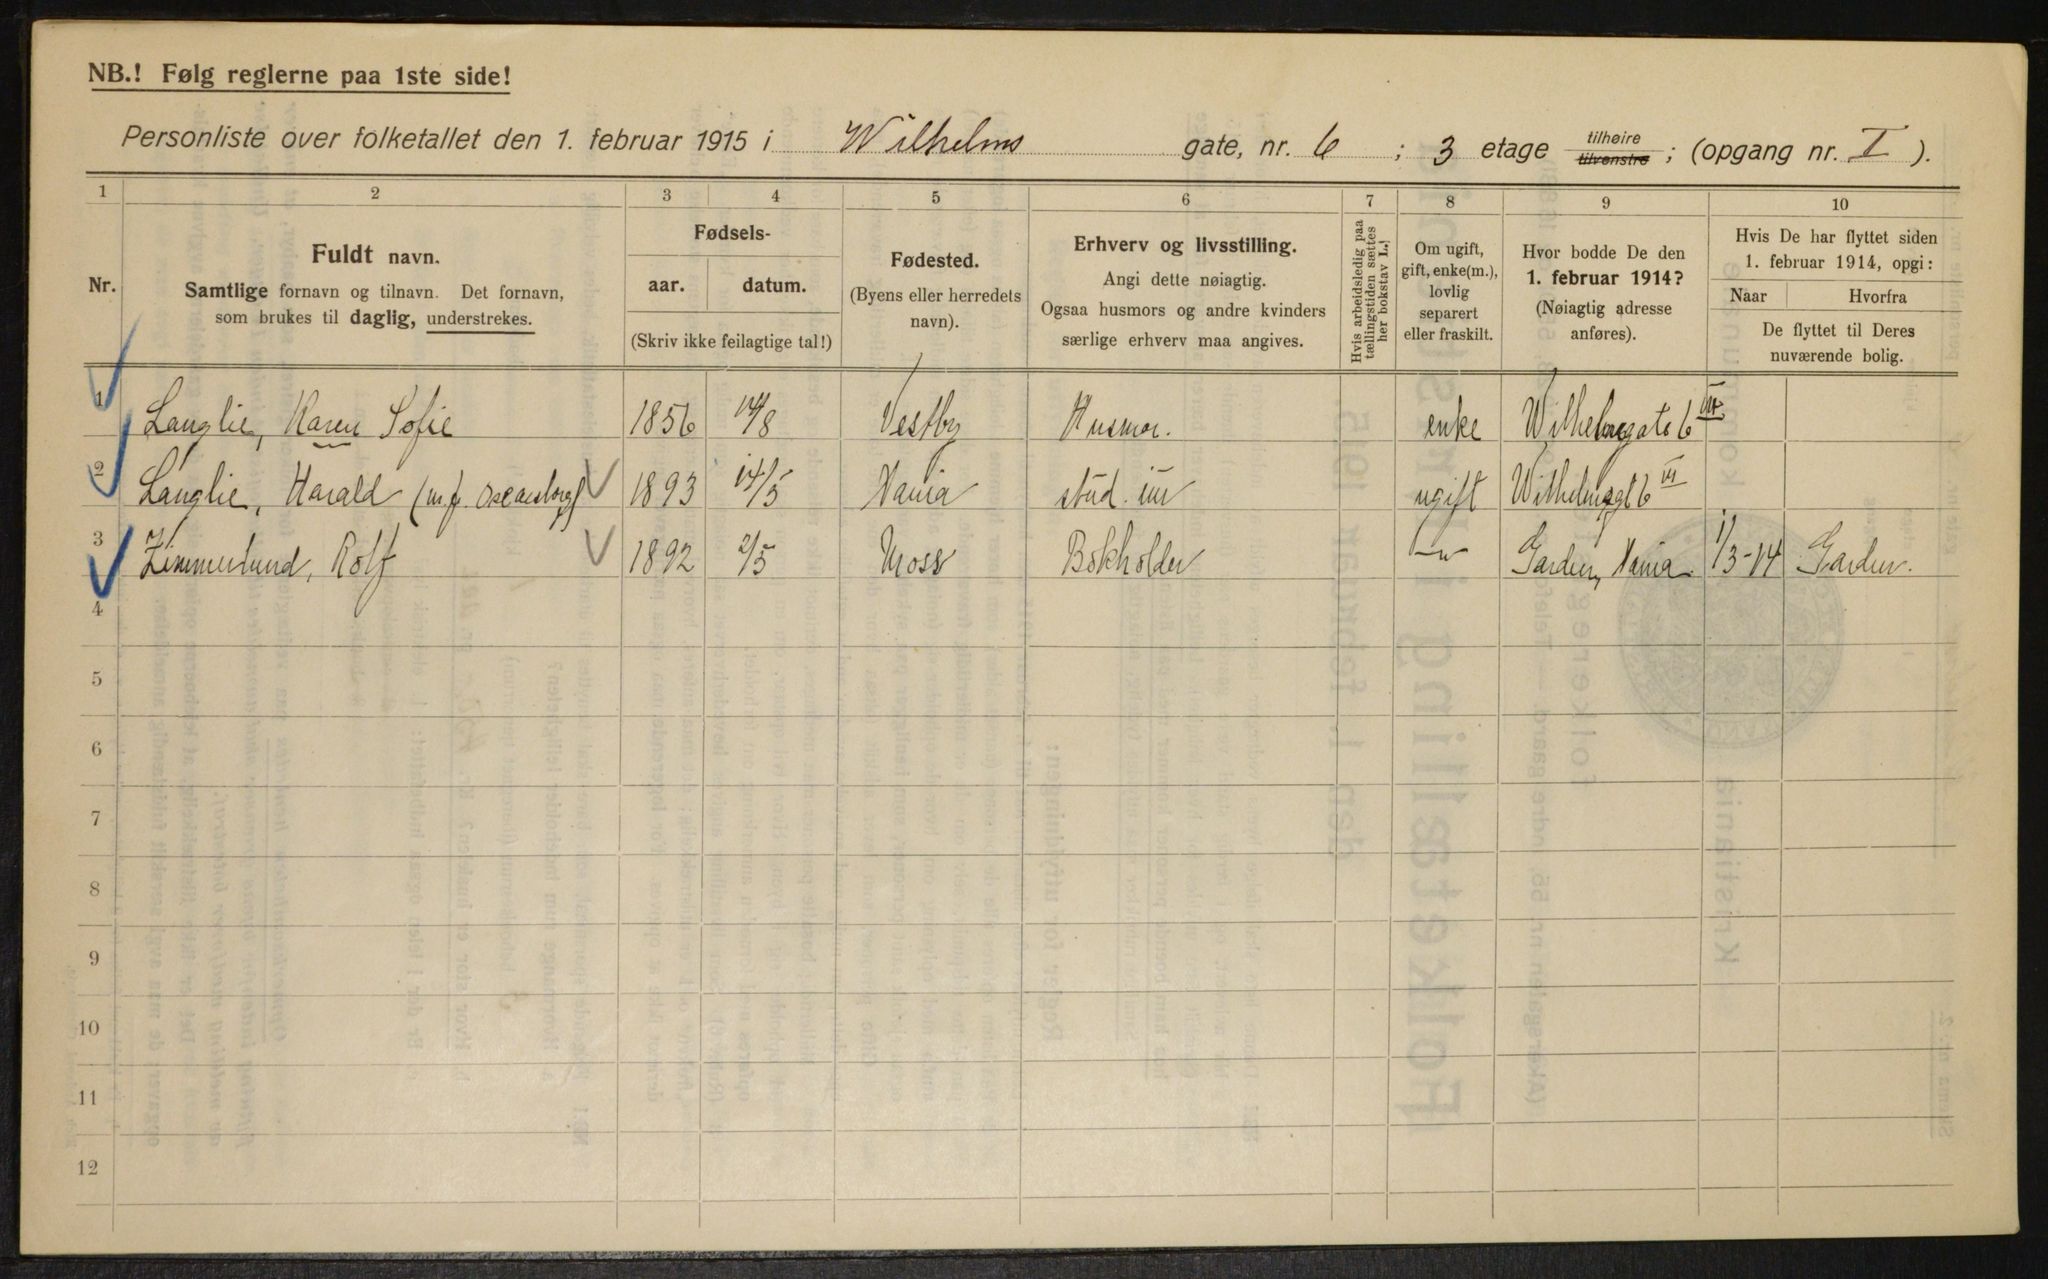 NB.! Følg reglerne paa 1ste side!
Personliste over folketallet den 1. februar 1915 i Wilhelms gate, nr. 6 ; 3 etage tilhøire tilvenstre ; (opgang nr. I ).
1 2 3 4 5 6 7 8 9 10
Nr.
Fuldt navn.
Samtlige fornavn og tilnavn. Det fornavn,
som brukes til daglig, understrekes.
Fødsels-
aar. datum.
(Skriv ikke feilagtige tal!)
Fødested.
(Byens eller herredets
navn).
Erhverv og livsstilling.
Angi dette nøiagtig.
Ogsaa husmors og andre kvinders
særlige erhverv maa angives.
Hvis arbeidsledig paa
tællingstiden sættes
her bokstav L.!
Om ugift,
gift, enke(m.),
lovlig
separert
eller fraskilt.
Hvor bodde De den
1. februar 1914?
(Nøiagtig adresse
anføres).
Hvis De har flyttet siden
1. februar 1914, opgi:
Naar Hvorfra
De flyttet til Deres
nuværende bolig.
1 Langlie, Karen Sofie 1856 14/8 Vestby Husmor. enke Wilhelmsgate 6 III
2 Langlie, Harald (m.f. Oscarsborg) 1893 14/5 Kania stud. iur ugift Wilhelmsgt 6 III
3 Zimmerlund, Rolf 1892 2/5 Moss Bokholder —„— Garden, Kania 1/3-14 Garden.
4
5
6
7
8
9
10
11
12